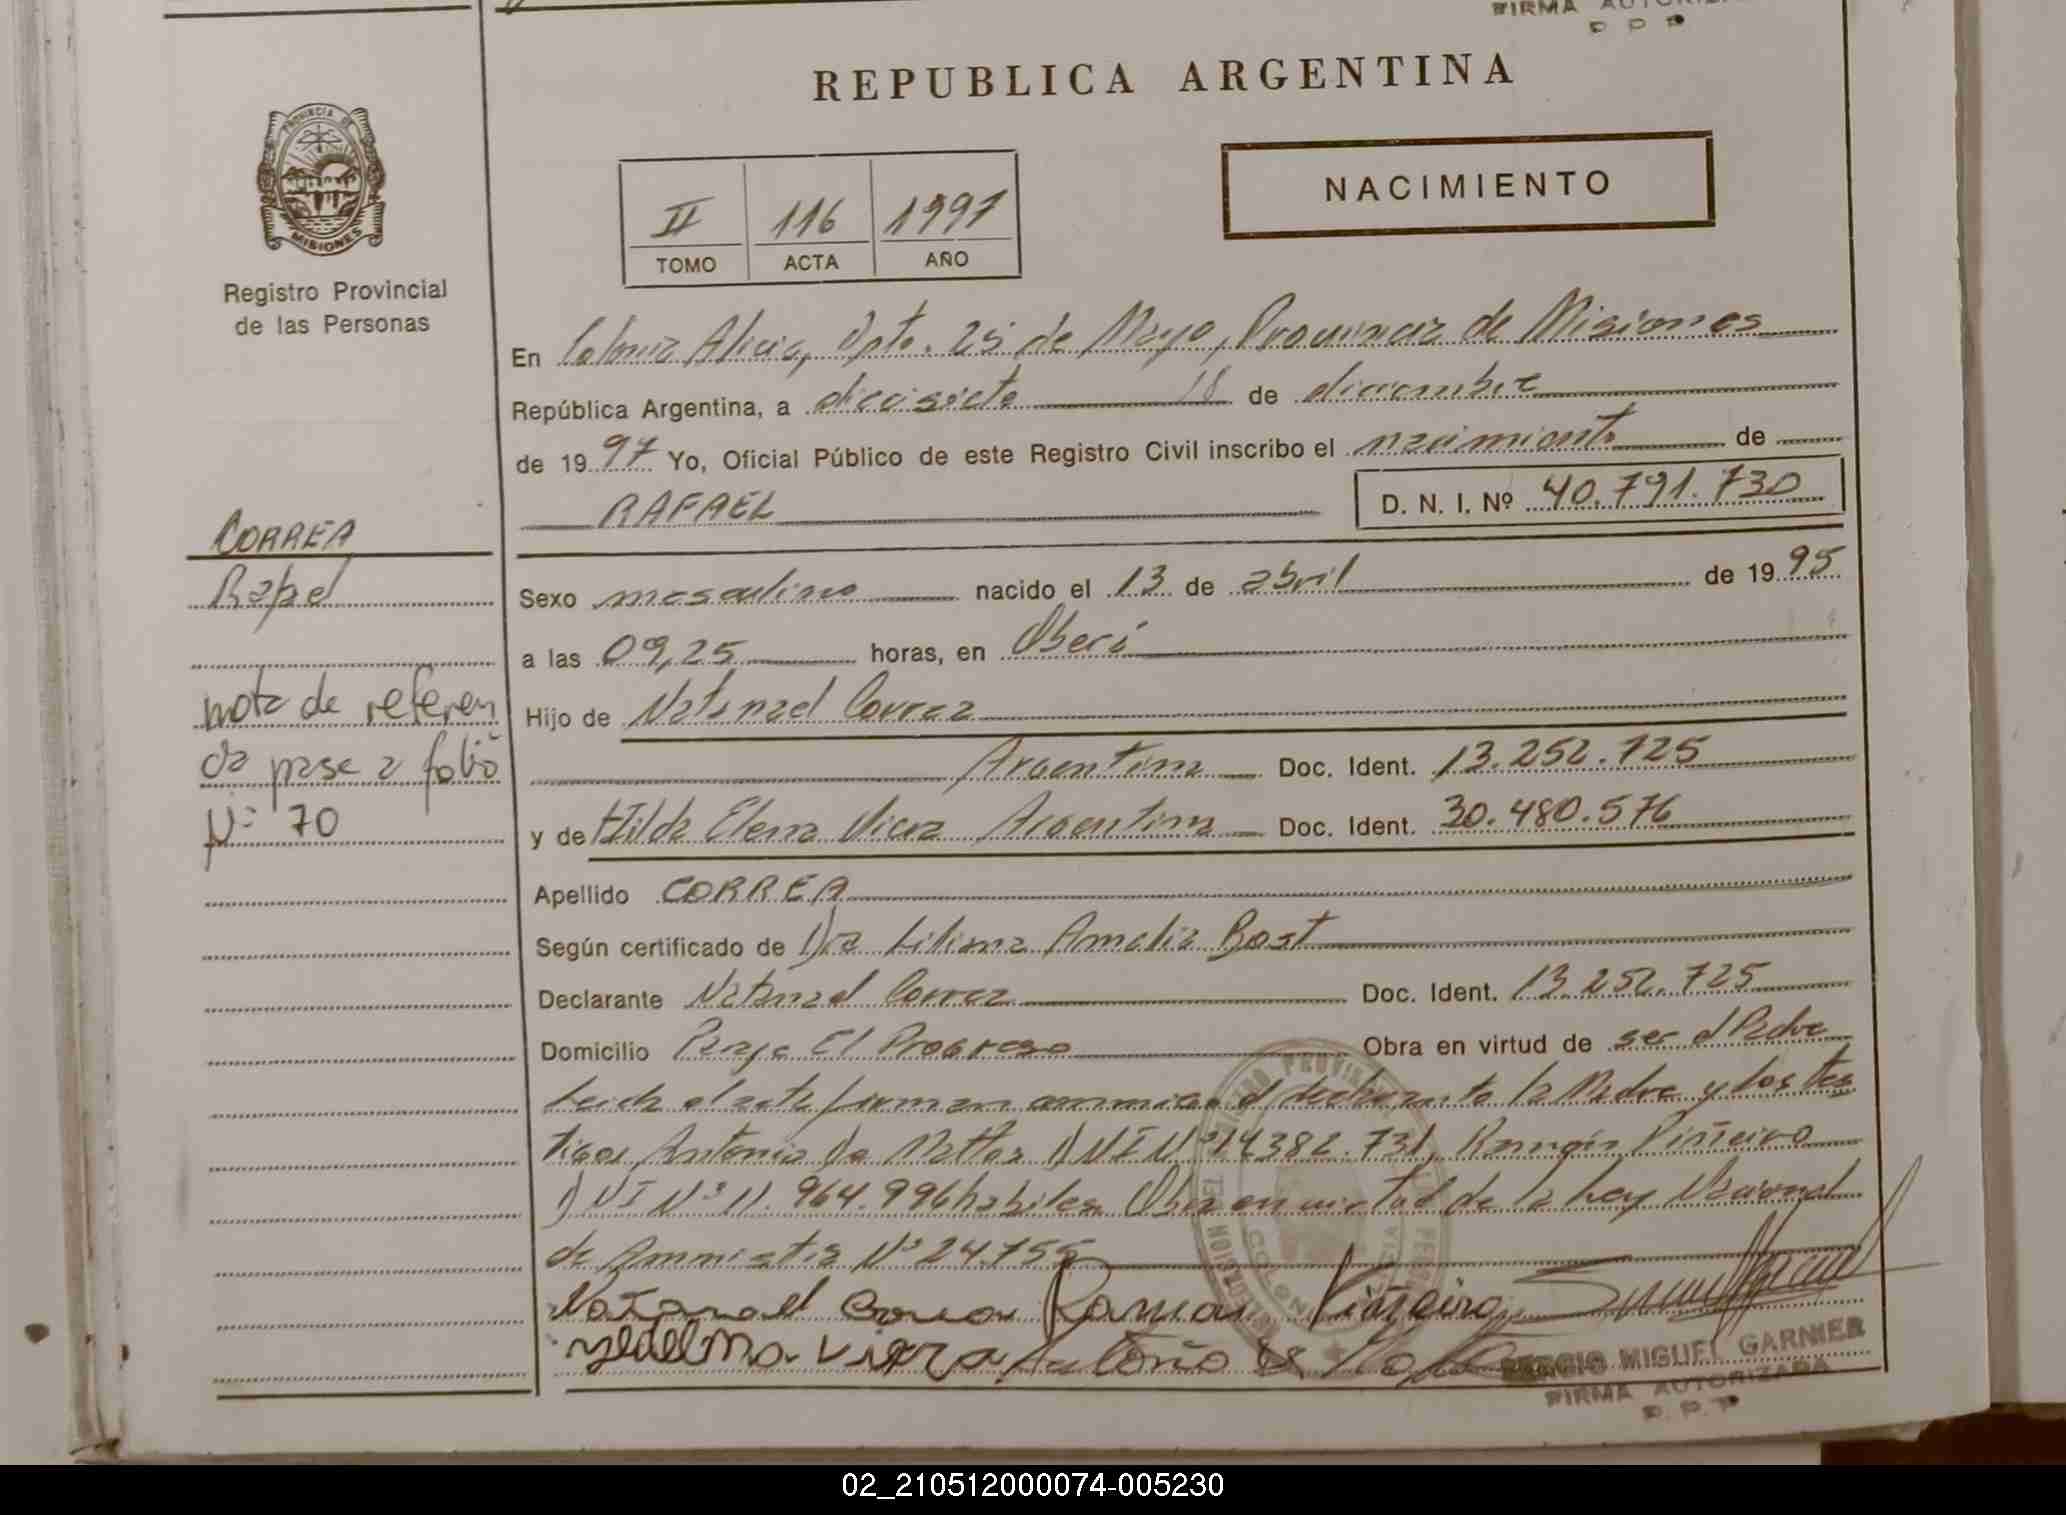 FIRMA AUTORIZA
P P P
REPUBLICA ARGENTINA
PROVINCIA DE
MISIONES
Registro Provincial
de las Personas
II 116 1997
TOMO ACTA AÑO
NACIMIENTO
En Colonia Alicia, Dpto. 25 de Mayo, Provincia de Misiones
República Argentina, a diecisiete 18 de diciembre
de 1997 Yo, Oficial Público de este Registro Civil inscribo el nacimiento de
RAFAEL D. N. I. Nº 40.791.730
CORREA
Rafael
nota de referen
cia pase a folio
Nº 70
Sexo masculino nacido el 13 de abril de 1995
a las 09,25 horas, en Oberá
Hijo de Natanael Correa
Argentina Doc. Ident. 13.252.725
y de Hilda Elena Viera Argentina Doc. Ident. 30.480.576
Apellido CORREA
Según certificado de Dra Liliana Amalia Bast
Declarante Natanael Correa Doc. Ident. 13.252.725
Domicilio Paraje El Progreso Obra en virtud de ser el Padre
Leida el acta firman conmigo el declarante la Madre y los tes
tigos Antonio Da Mattos DNI Nº 14382.731, Ramón Piñeiro
DNI Nº 11.964.996 habiles. Obra en virtud de la Ley Nacional
de Ammistia Nº 24.755
Natanael Correa Ramon Piñeiro
Viera Antonio
SERGIO MIGUEL GARNIER
FIRMA AUTORIZADA
P. P. P
02_210512000074-005230